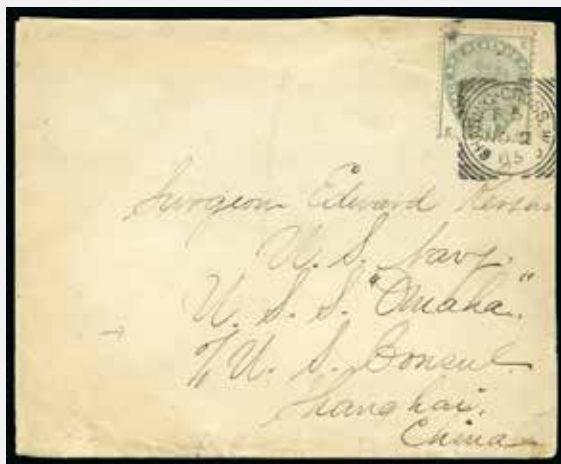 CHARING·CROSS
85
Surgeon Edward
U. S. Navy.
U. S. S. "Omaha"
c/o U. S. Consul
Shanghai,
China